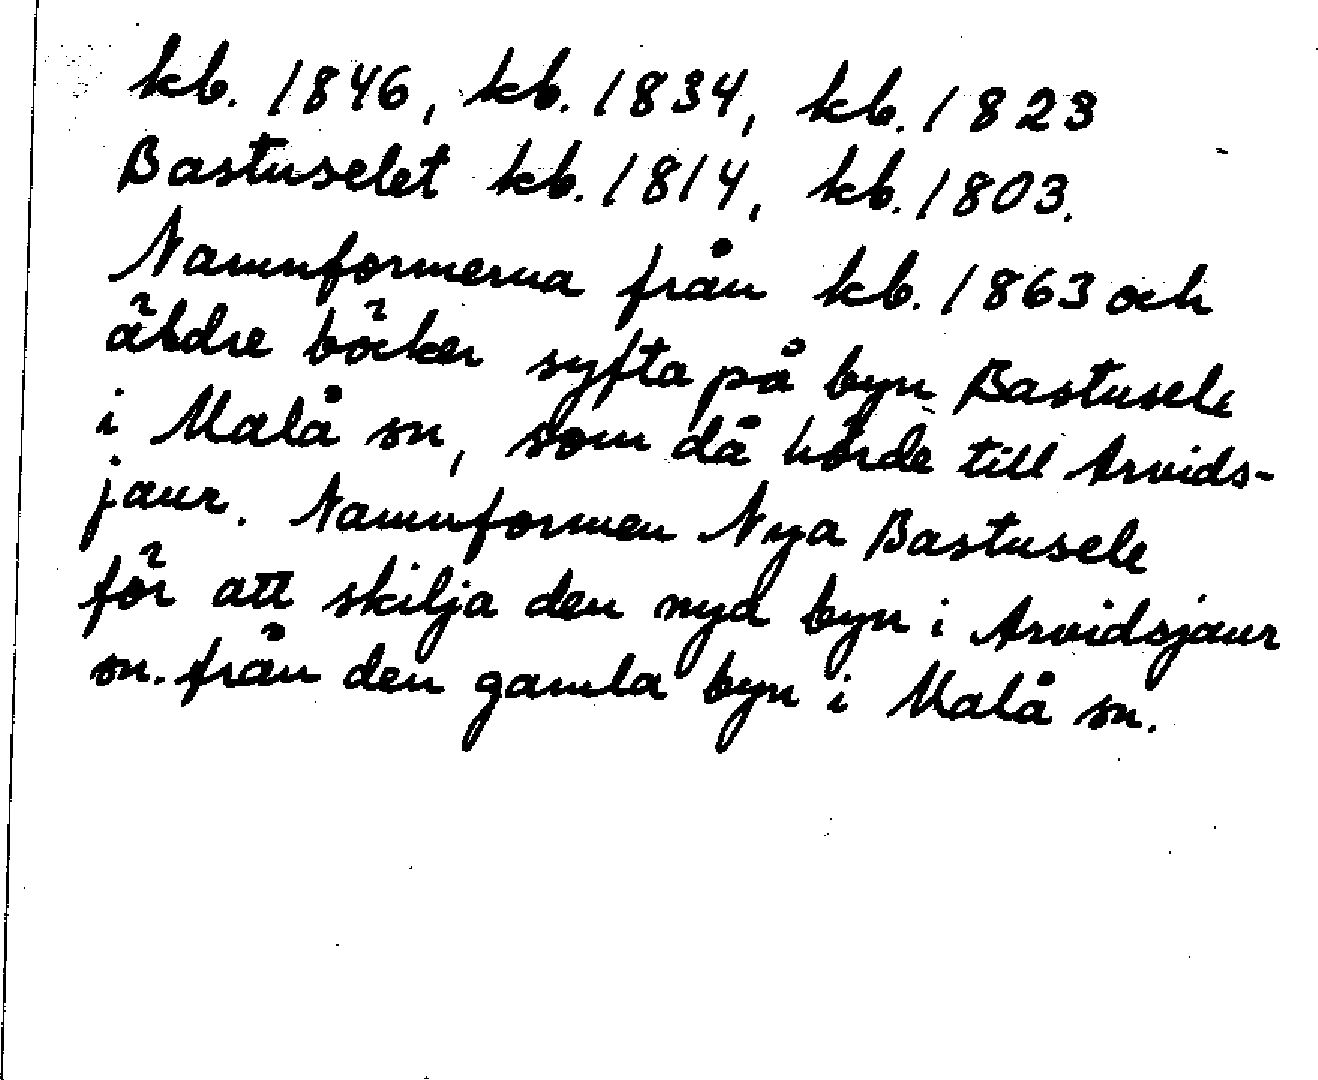 kb. 1846, kb. 1834, kb. 1823
Bastuselet kb. 1814, kb. 1803.
Namnformerna från kb. 1863 och
äldre böcker syfta på byn Bastusele
i Malå sn, som då hörde till Arvids-
jaur. Namnformen Nya Bastusele
för att skilja den nya byn i Arvidsjaur
sn. från den gamla byn i Malå sn.